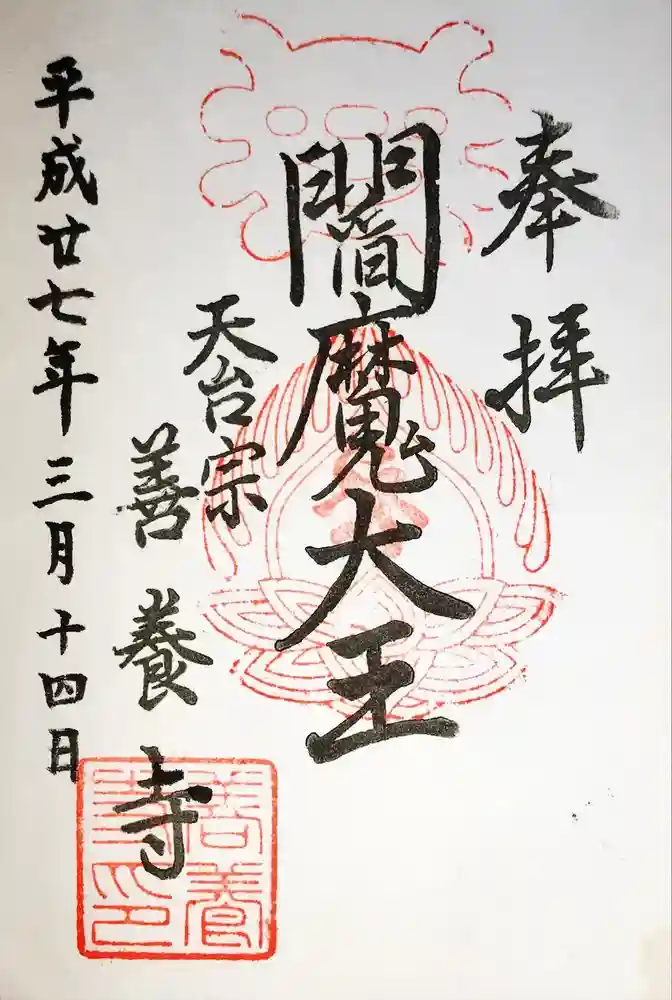 奉拝
閻魔大王
天台宗
善養寺
平成廿七年三月十四日
善養寺印